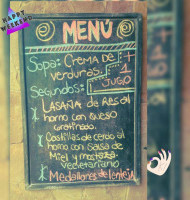 HAPPY
WEEKEND
MENÚ
Sopa: Crema de
verduras.
Segundos: 1 JUGO
LASAÑA de Res al
horno con queso
Gratinado.
Costillas de cerdo al
horno con salsa de
Miel y mostaza
vegetariano
Medallones de lenteja